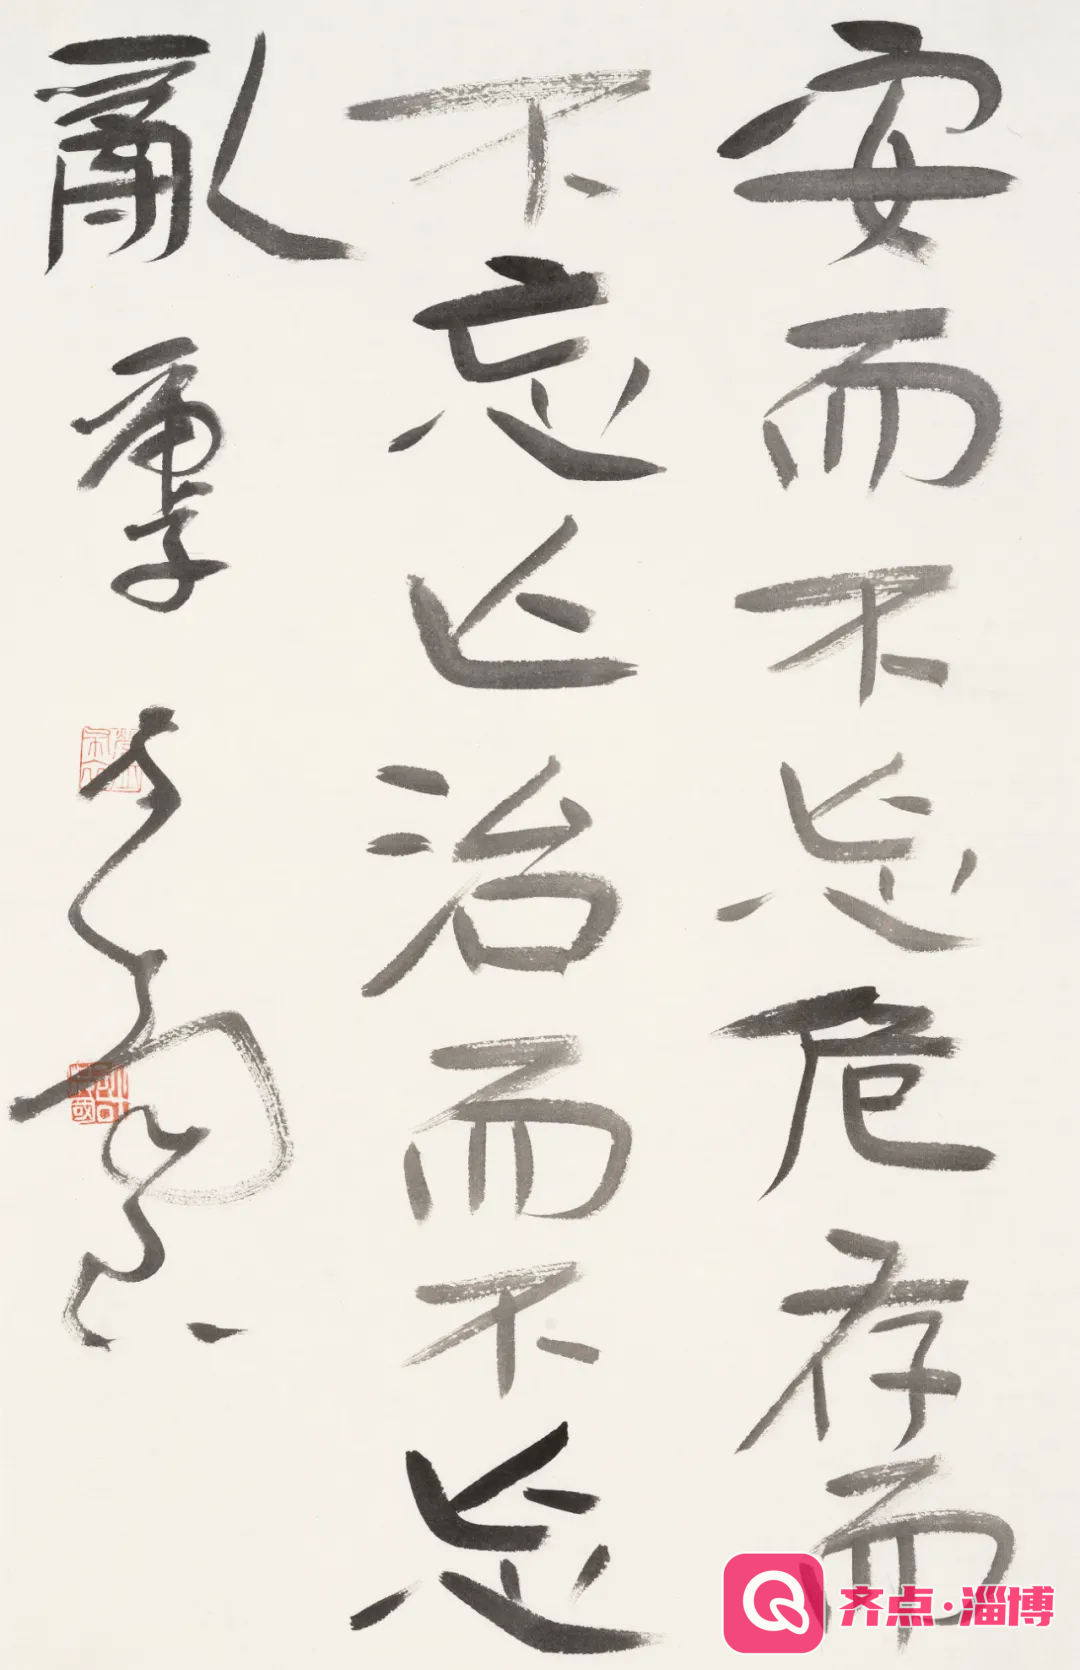 安而不忘危存而
不忘亡治而不忘
亂 庚子
齐点·淄博